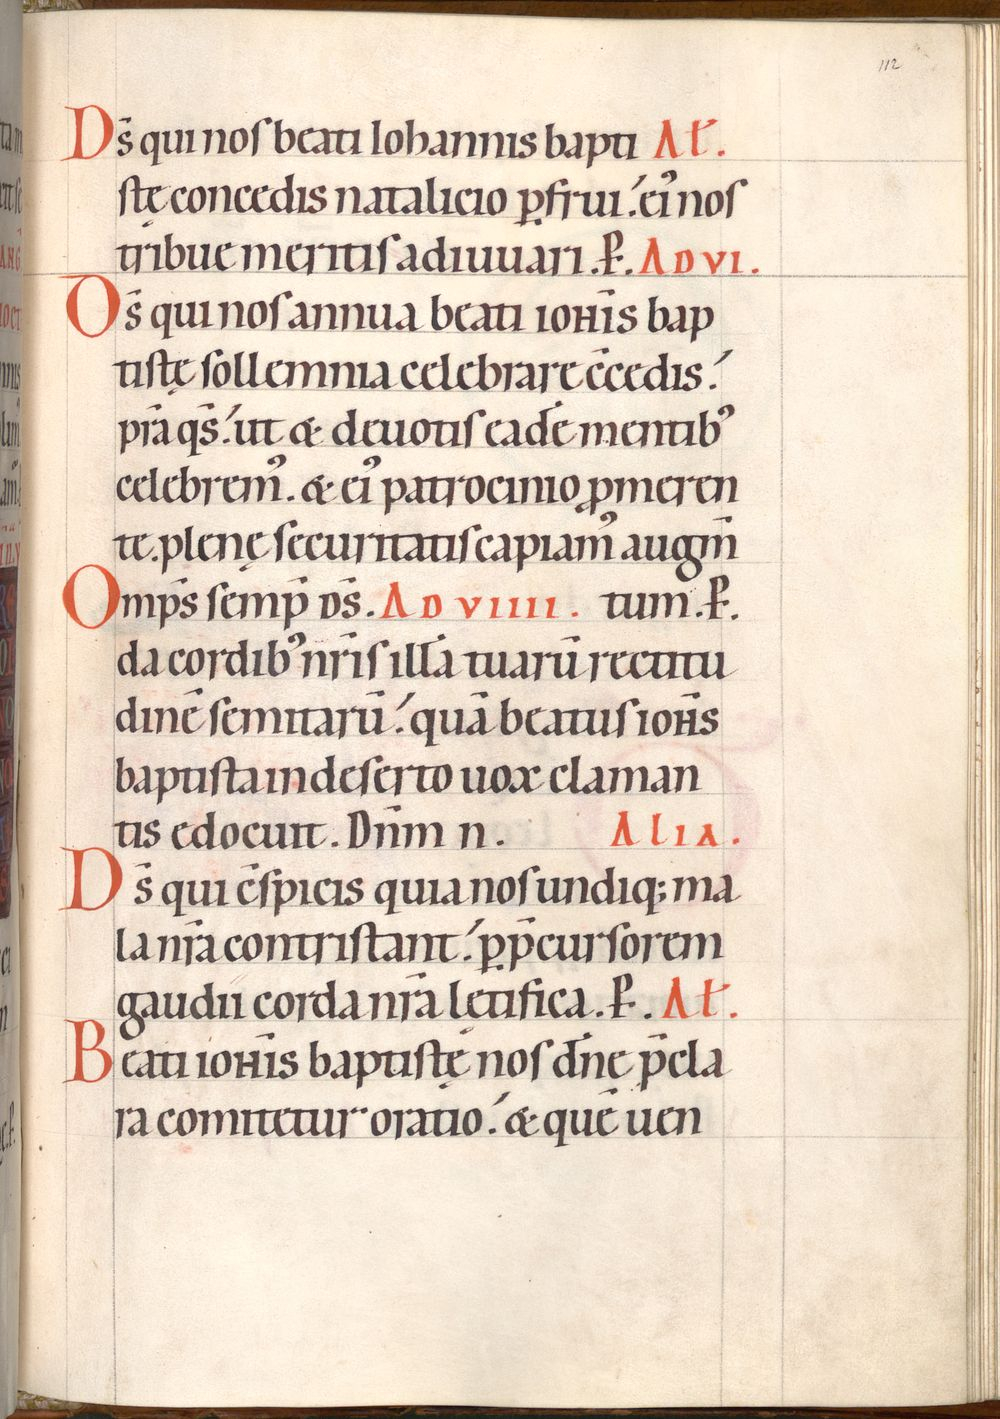 112
Ds̄ qui nos beati Iohannis bapti Aƚ.
stę concedis natalicio ꝑfrui. eiꝰ nos
tribue meritis adiuuari. P̱. AD VI.
Ds̄ qui nos annua beati IOHīS bap
tistę sollemnia celebrare c̄cedis.
pr̄a qs̄. ut & deuotis eadē mentibꝰ
celebremꝰ. & eiꝰ patrocinio ꝓmeren
te. plenę securitatis capiamꝰ augm̄
Omps̄ semp̄ DS̄. AD VIIII. tum. P̱.
da cordibꝰ nr̄is illā tuarū rectitu
dinē semitarū. quā beatus ioħs
baptista in deserto uox claman
tis edocuit. Dn̄m n. Alia.
Ds̄ qui c̄spicis quia nos undiq; ma
la nr̄a contristant. ꝑ p̄cursorem
gaudii corda nr̄a lętifica. P̱. Aƚ.
Beati IOHīS baptistę nos dn̄e p̄cla
ra comitetur oratio. & quē uen